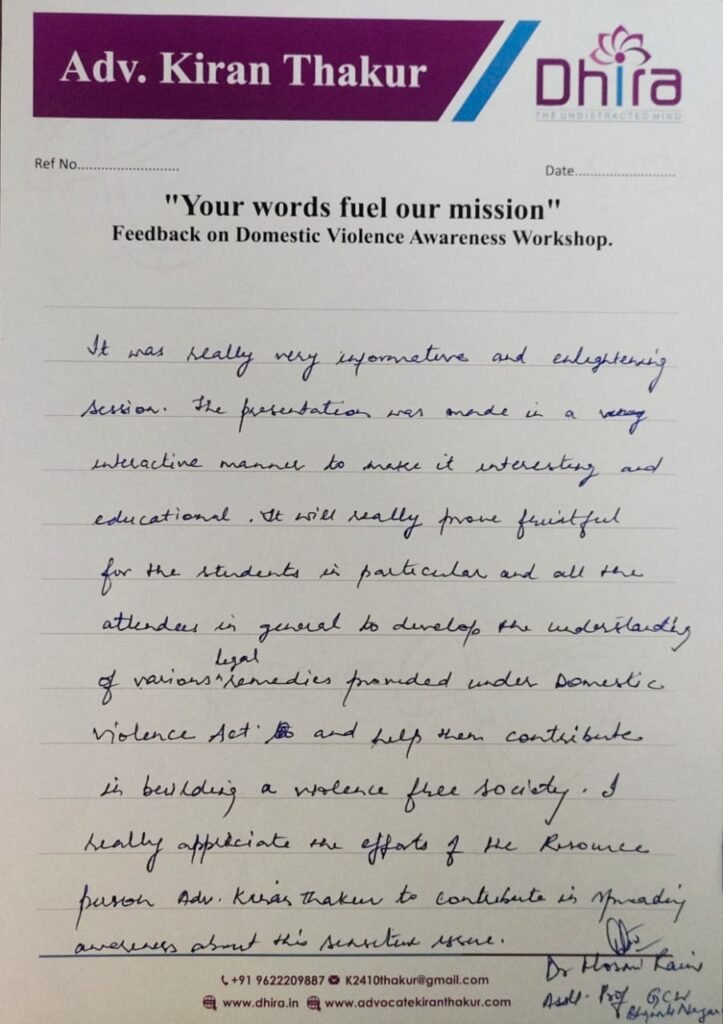 Adv. Kiran Thakur
Dhira
THE UNDISTRACTED MIND
Ref No..........................
Date..........................
"Your words fuel our mission"
Feedback on Domestic Violence Awareness Workshop.
It was really very informative and enlightening
session. The presentation was made in a very
interactive manner to make it interesting and
educational. It will really prove fruitful
for the students in particular and all the
attendees in general to develop the understanding
legal
of various ^ remedies provided under Domestic
violence Act. and help them contribute
in building a violence free society. I
really appriciate the efforts of the Resource
person Adv. Kiran Thakur to contribute in spreading
awareness about this sensitive issue.
+91 9622209887 K2410thakur@gmail.com
www.dhira.in www.advocatekiranthakur.com
Dr
Asstt. Prof GCW
Nagar